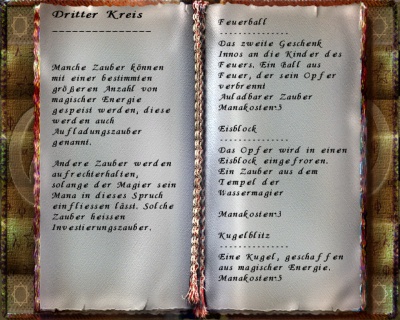 Dritter Kreis
-----------------
Manche Zauber können
mit einer bestimmten
größeren Anzahl von
magischer Energie
gespeist werden, diese
werden auch
Aufladungszauber
genannt.
Andere Zauber werden
aufrechterhalten,
solange der Magier sein
Mana in dieses Spruch
einfliessen lässt. Solche
Zauber heissen
Investierungszauber.
Feuerball
---------------
Das zweite Geschenk
Innos an die Kinder des
Feuers. Ein Ball aus
Feuer, der sein Opfer
verbrennt
Auladbarer Zauber
Manakosten:5
Eisblock
---------------
Das Opfer wird in einen
Eisblock eingefroren.
Ein Zauber aus dem
Tempel der
Wassermagier
Manakosten:3
Kugelblitz
---------------
Eine Kugel, geschaffen
aus magischer Energie.
Manakosten:5